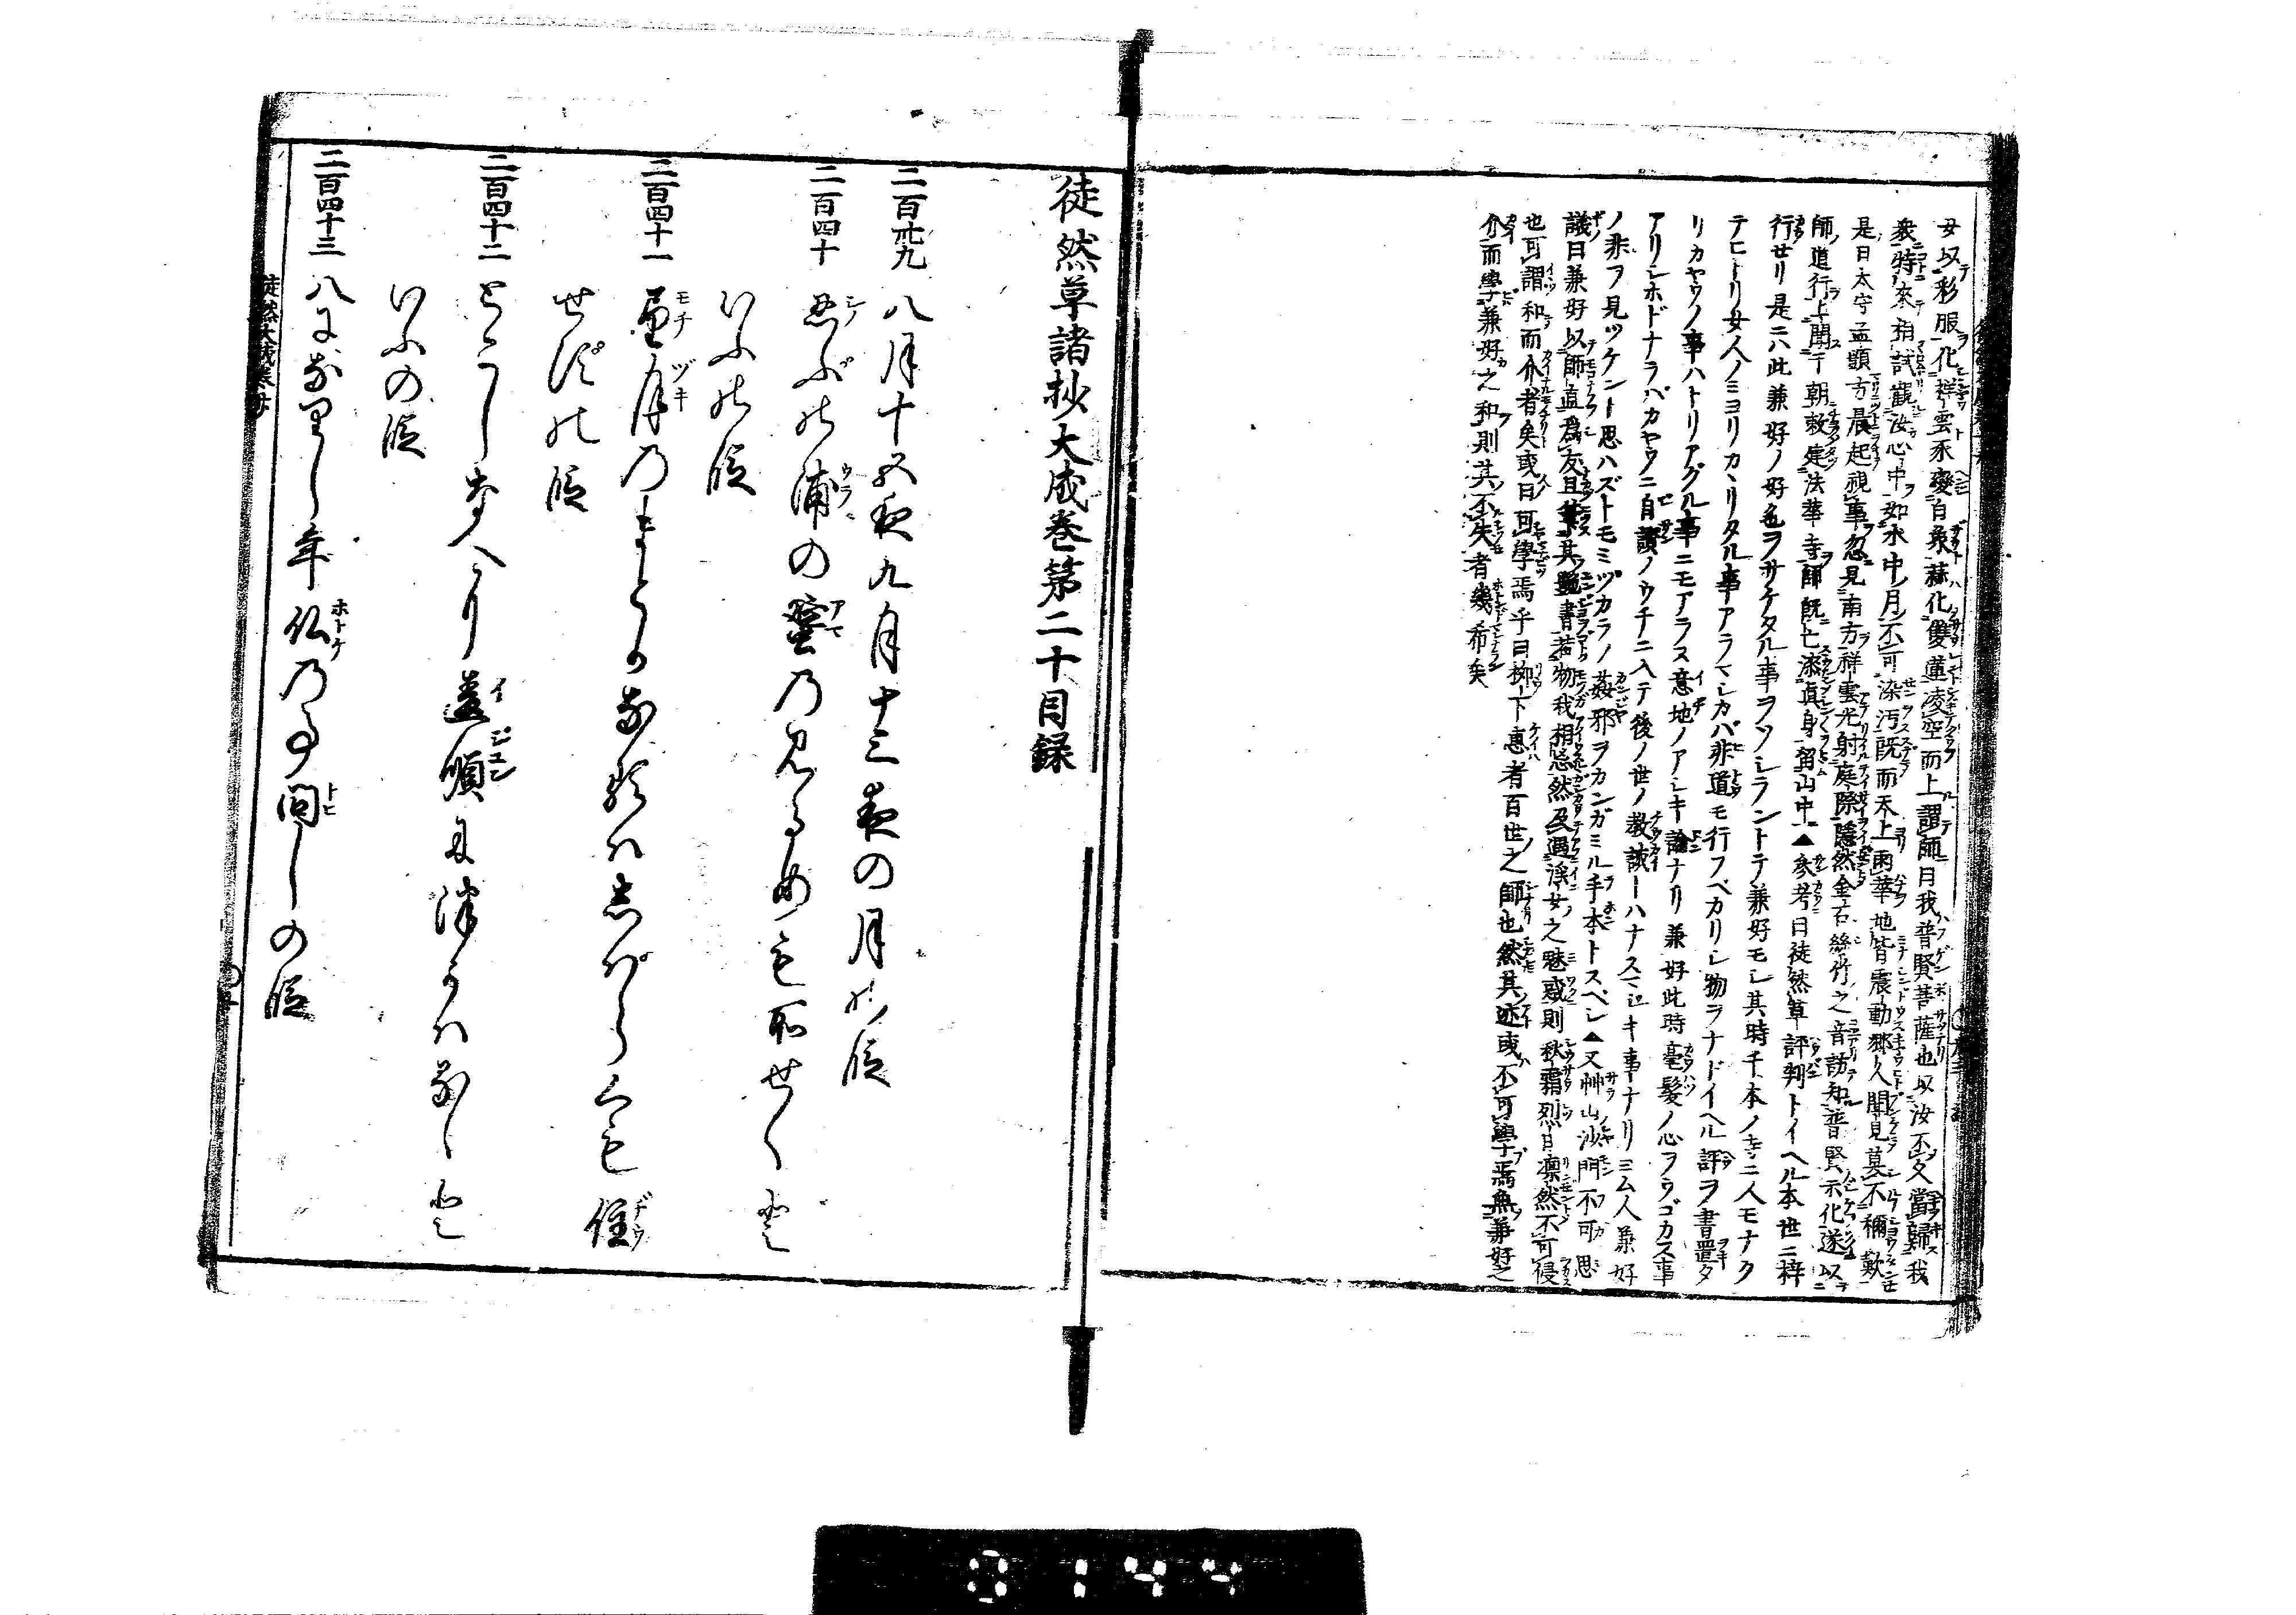 女以彩服化祥雲豕變白象蒜化雙蓮凌空而上謂師曰我普賢菩薩也以汝不久當歸我
衆特來相試觀汝心中如水中月不可染汚既而天上雨華地皆震動郷人聞見莫不稱歎
是日太守孟顗方晨起視事忽見南方祥雲光射庭際隱然金石絲竹之音訪知普賢示化遂以
師道行上聞于朝敕建法華寺師既亡漆真身留山中▲参考曰徒然草評判トイヘル本世ニ梓
行セリ是ニハ此兼好ノ好色ヲサケタル事ヲソシラントテ兼好モシ其時千本ノ寺ニ人モナク
テヒトリ女人ノミヨリカヽリタル事アラマシカバ非道モ行フベカリシ物ヲナドイヘル評ヲ書置タ
リカヤウノ事ハトリアグル事ニモアラス意地ノアシキ論ナリ兼好此時毫髪ノ心ヲウゴカス事
アリシホドナラバカヤウニ自讃ノウチニ入テ後ノ世ノ教誡ーハナスマシキ事ナリミム人兼好
ノ非ヲ見ツケント思ハズトモミヅカラノ姦邪ヲカンガミル手本トスベシ▲又艸山沙門不可思
議曰兼好以師直為友且筆其艶書若物我相忘然及遇淫女之魅惑則秋霜烈日凛然不可侵
也可謂和而介者矣或曰可學焉乎曰柳下惠者百世之師也然其迹或不可學焉無兼好之
介而學兼好之和則其不失者幾希矣
徒然草諸抄大成巻第二十目録
二百卅九 八月十五夜九月十三夜の月の段
二百四十 忍ぶの浦の蜑の見るめも所せくと
いふの段
二百四十一 望月のまとかなる事はしばらくも住
せずの段
二百四十二 とこしなへに違順に津かはるゝと
いふの段
二百四十三 八になりし年仏の事問しの段